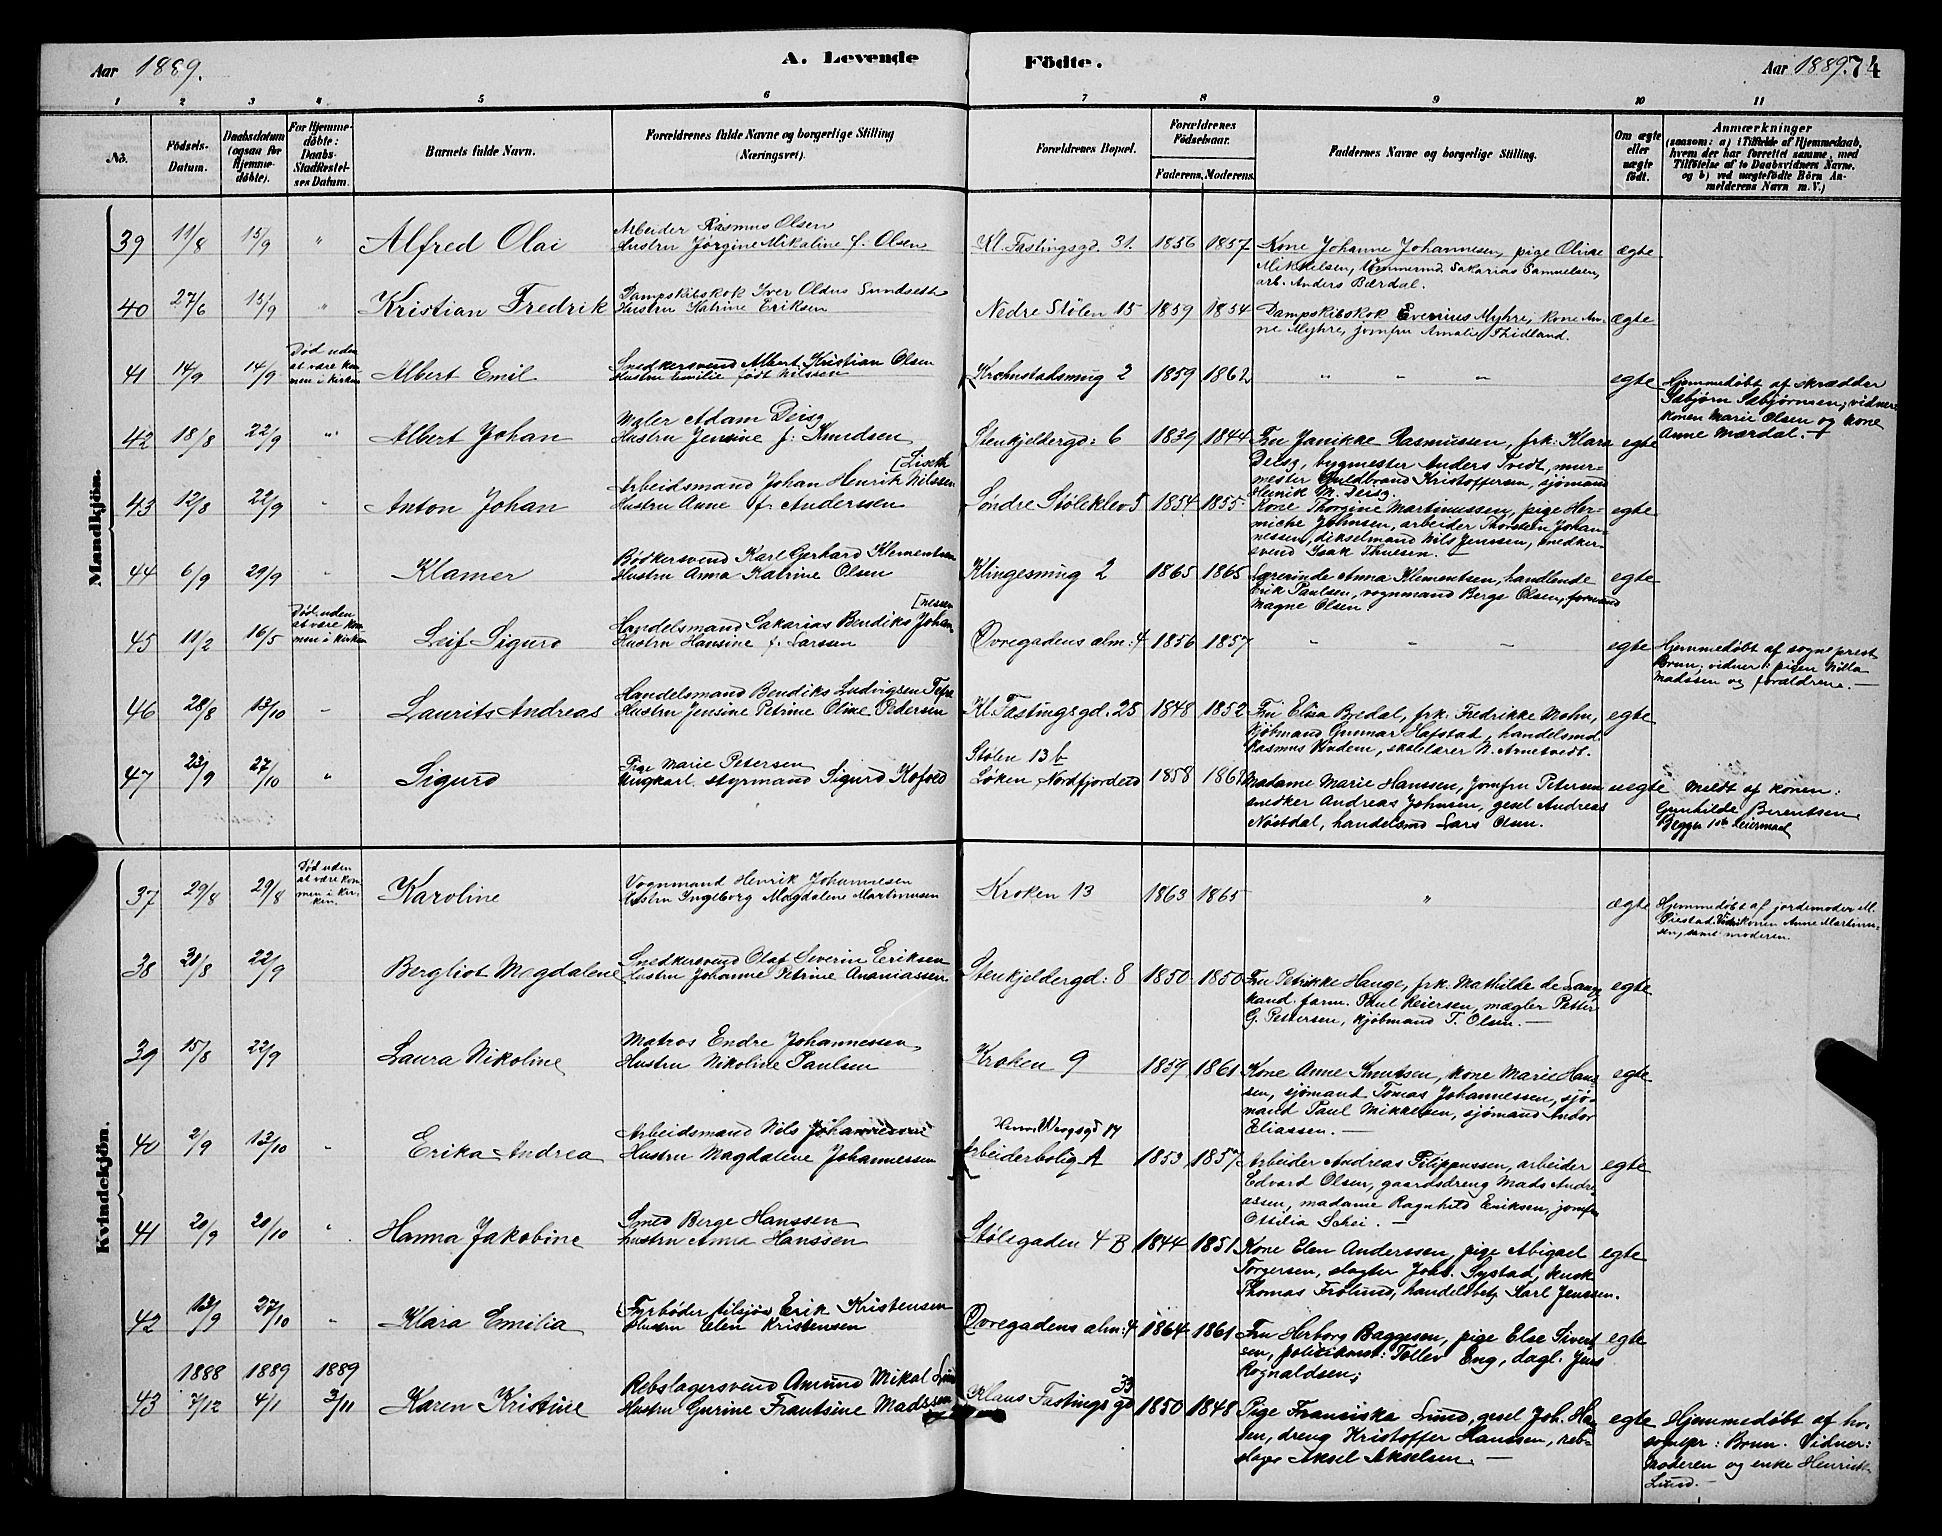 Aar 1889.
A. Levende
Födte.
Aar 1889. 74
1 2 3 4 5 6 7 8 9 10 11
No.
Födsels-
Datum.
Daabsdatum
(ogsaa for
Hjemme-
döbte).
For Hjemme-
döbte:
Daabs-
Stadfæstel-
ses Datum.
Barnets fulde Navn.
Forældrenes fulde Navne og borgerlige Stilling
(Næringsvei).
Forældrenes Bopæl.
Forældrenes
Födselsaar.
Faderens. Moderens.
Faddernes Navne og borgerlige Stilling.
Om ægte
eller
uægte
födt.
Anmærkninger
(saasom: a) i Tilfælde af Hjemmedaab,
hvem der har forrettet samme, med
Tilföielse af to Daabsvidners Navne,
og b) ved uægtefödte Börn An-
melderens Navn m. V.)
Mandkjön.
39 11/8 15/9 " Alfred Olai
Arbeider Rasmus Olsen
Hustru Jørgine Mikaline f. Olsen
Kl. Fastingsgd. 31. 1856 1857
Kone Johanne Johannesen, pige Oline
Mikkelsen, tømmermd. Sakarias Samuelsen,
arb. Anders Bærdal.
ægte
40 27/6 15/9 " Kristian Fredrik
Dampskibskok Iver Oldus Sundseth
Hustru Katrine Eriksen
Nedre Stølen 15 1859 1854
Dampskibskok Evenius Myhre, kone An-
ne Myhre, jomfru Amalie Thidland.
ægte
41 14/9 14/9
Død uden
at være kom-
men i kirken
Albert Emil
Snedkersvend Albert Kristian Olsen
Hustru Emilie født Nilssen
Krohnstadsmug 2 1859 1862 " " "
egte
Hjemmedøbt af skrædder
Asbjørn Asbjørnsen; vidner:
konen Marie Olsen og kone
Anne Mærdal.
42 18/8 22/9 " Albert Johan
Maler Adam Deisz
Hustru Jensine f: Knudsen
Stenkjeldergd: 6 1839 1844
Fru Janikke Rasmussen, frk: Klara
Deisz, bygmester Anders Tvedt, mur-
mester Guldbrand Kristoffersen, sjømand
Henrik M. Deisz.
egte
43 12/8 22/9 " Anton Johan
[Liseth
Arbeidsmand Johan Henrik Nilssen
Hustru Anne f. Anderssen
Søndre Støleklev 5 1854 1855
Kone Thorgine Martinussen, pige Her-
miche Johnsen, arbeider Thorstein Johan-
nessen, dikselmand Nils Jenssen, snedker-
svend Isak Thuesen.
egte
44 6/9 29/9 " Klamer
Bødkersvend Karl Gerhard Klementsen
Hustru Anna Katrine Olsen
Klingesmug 2 1865 1865
Lærerinde Anna Klementsen, handlende
Erik Paulsen, vognmand Berge Olsen, formand
Magne Olsen
egte
45 11/2 16/5
Død uden
at være kom-
men i kirken
Leif Sigurd
[nessen
Handelsmand Sakarias Bendiks Johan-
Hustru Hansine f. Larsen
Øvregadens alm: 4 1856 1857 " " "
egte
Hjemmedøbt af sogneprest
Brun; vidner: pigen Milla
Madssen og forældrene.
46 28/8 13/10 " Laurits Andreas
Handelsmand Bendiks Ludvigsen
Hustru Jensine Petrine Oline Pedersen
Kl. Fastingsgd. 25 1848 1852
Fru Elisa Bredal, frk. Fredrikke Mohn,
kjøbmand Gunnar Hafstad, handelsmd.
Rasmus Hindem, skolelærer N. Arnetvedt.
egte
47 23/9 27/10 " Sigurd
Pige Marie Petersen
Ungkarl. styrmand Sigurd Kofoed
Stølen 13 b
Løken, Nordfjordeid 1858 1862
Madame Marie Hanssen, Jomfru Petersen
snedker Andreas Johnsen, gesel Andreas
Nøstdal, handelsmd Lars Olsen.
uegte
Meldt af konen:
Gunhilde Berentsen
Begges 1ste Leiermaal
Kvindekjön.
37 29/8 29/8
Død uden
at være kom-
men i kir-
ken.
Karoline
Vognmand Henrik Johannesen
Hustru Ingeborg Magdalene Martinusen
Kroken 13 1863 1865 "
ægte
Hjemmedøbt af jordemoder M.
Piestad Vidn. konen Anne Martinu-
sen, samt moderen.
38 31/8 22/9 Bergliot Magdalene
Snedkersvend Olaf Severin Eriksen
Hustru Johanne Petrine Ananiassen
Stenkjeldergd: 8 1850 1850
Fru Petrikke Hauge, frk. Mathilde de Lange
kand. farm. Paul Reiersen, mægler Petter
G. Pettersen, kjøbmand T. Olsen.
egte
39 15/8 22/9 Laura Nikoline
Matros Endre Johannessen
Hustru Nikoline Paulsen
Kroken 9 1859 1861
Kone Anne Knutsen, kone Marie Han-
sen, sjømand Tomas Johannessen, sjø-
mand Paul Mikkelsen, sjømand Andor
Eliassen.
egte
40 2/9 13/10 " Erika Andrea
Arbeidsmand Nils Johannessen
Hustru Magdalene Johannessen
Arbeiderbolig A 1853 1857
Arbeider Andreas Filippussen, arbeider
Edvard Olsen, gaardsdreng Mads Andre-
assen, madame Ragnhild Eriksen, jomfru
Ottilia Schei.
egte
41 20/9 20/10 " Hanna Jakobine
Smed Berge Hanssen
Hustru Anna Hanssen
Stølegaden 4 B 1844 1851
Kone Elen Anderssen, pige Abigael
Torgersen, slagter Johs. Systad, kusk
Thomas Frölund, handelsbetj Karl Jenssen.
egte
42 13/9 27/10 " Klara Emilia
Fyrbøder tilsjøs Erik Kristensen
Hustru Elen Kristensen
Øvregadens alm: 4 1864 1861
Fru Herborg Baggesen, pige Else Sivert-
sen, politikonst: Tollev Eng, dagl. Jens
Rognaldsen;
egte
1888 1889 1889
43 7/12 4/1 3/11 Karen Kristine
Rebslagersvend Amund Mikal Lund
Hustru Gurine Frantsine Madssen
Klaus Fastings gd 33 1850 1848
Pige Franciska Lund, gesel Joh. Han-
sen, dreng Kristoffer Hanssen, reb-
slager Aksel Akselsen.
egte
Hjemmedøbt af hr.
sognepr: Brun. Vidner:
Moderen og enke Henrikke
Lund.